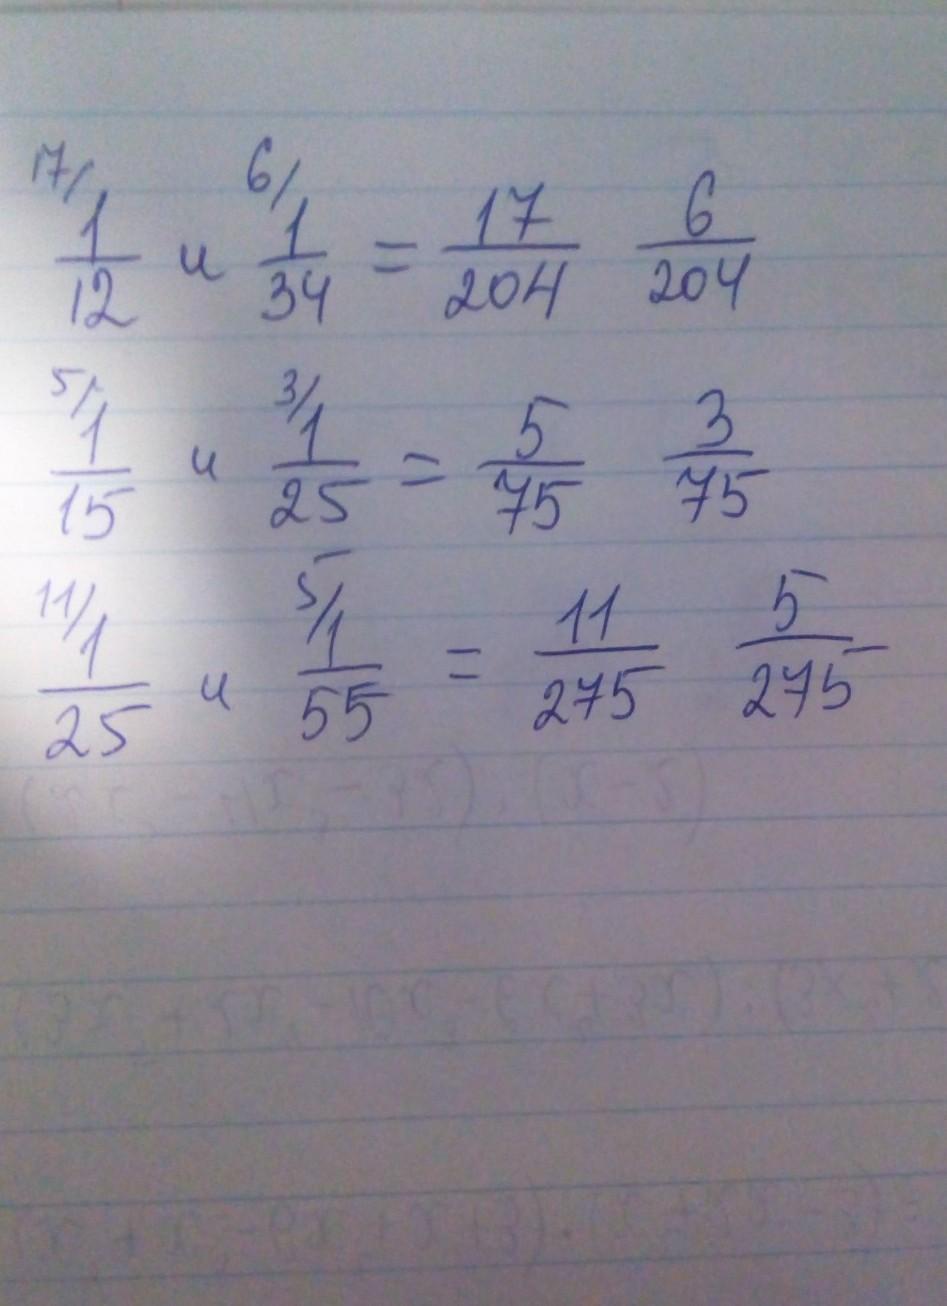 17/ 1/12 и 6/ 1/34 = 17/204 6/204
5/ 1/15 и 3/ 1/25 = 5/75 3/75
11/ 1/25 и 5/ 1/55 = 11/275 5/275